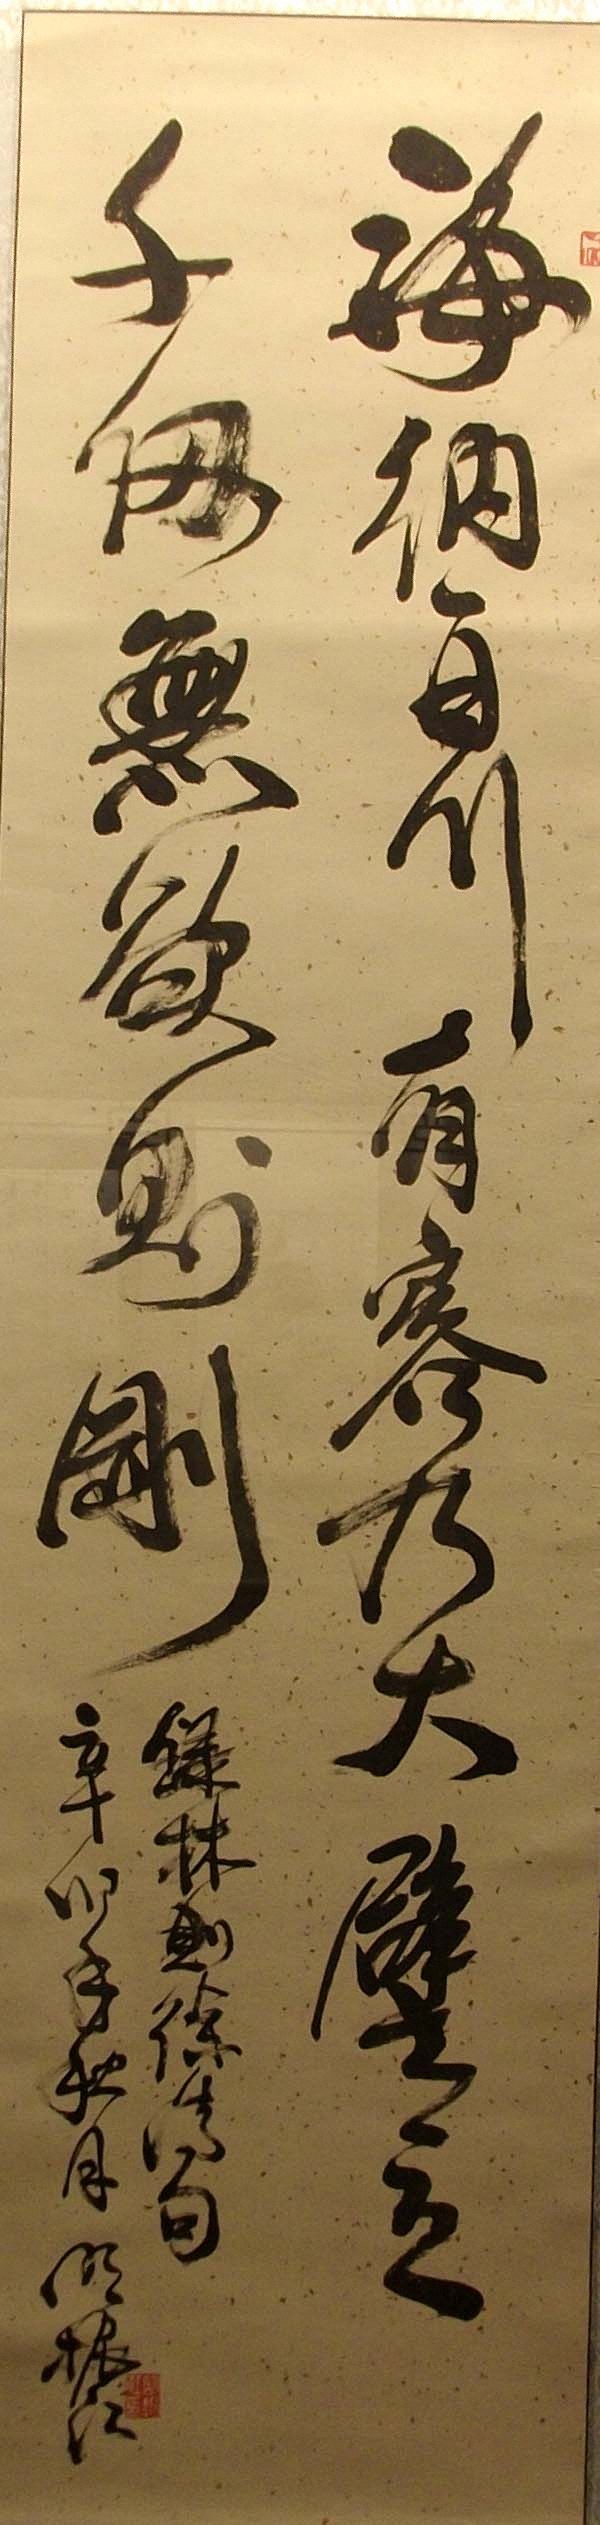 海納百川有容乃大壁立
千仞無欲則剛
錄林則徐清句
辛卯年秋月